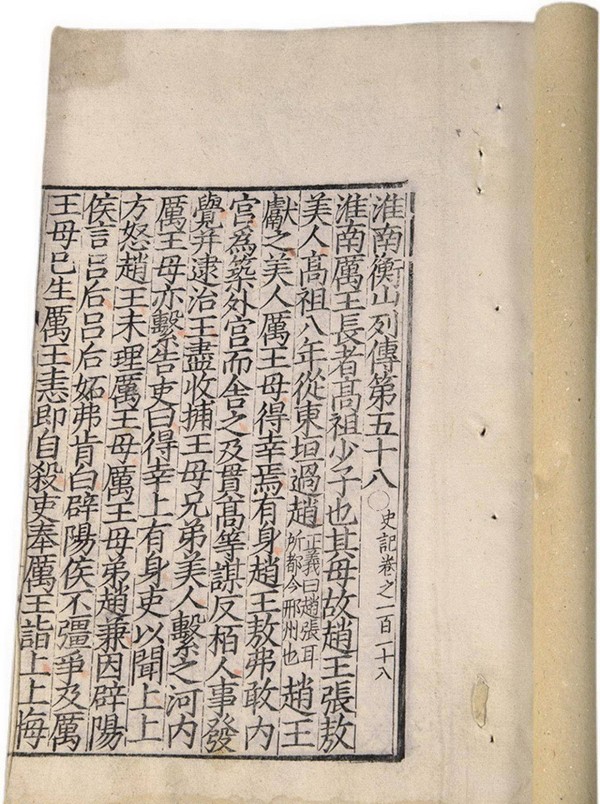 淮南衡山列傳第五十八〇史記卷之一百一十八
淮南厲王長者髙祖少子也其母故趙王張敖
美人髙祖八年從東垣過趙正義曰趙張耳所都今邢州也趙王
獻之美人厲王母得幸焉有身趙王敖弗敢内
宮為築外宮而舍之及貫髙等謀反栢人事發
覺并逮治王盡收捕王母兄弟美人繫之河内
厲王母亦繫告吏曰得幸上有身吏以聞上上
方怒趙王未理厲王母厲王母弟趙兼因辟陽
侯言吕后吕后妬弗肯白辟陽侯不彊爭及厲
王母已生厲王恚即自殺吏奉厲王詣上上悔